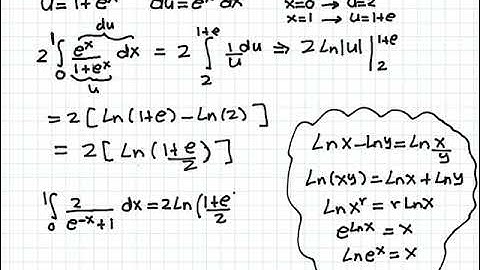 u=1+eˣ du=eˣ dx x=0 → u=2
x=1 → u=1+e
du
2 ∫₀¹ eˣ/(1+eˣ) dx = 2 ∫₂¹⁺ᵉ 1/u du ⇒ 2 Ln|u| |₂¹⁺ᵉ
u
= 2 [ Ln (1+e) - Ln(2) ]
= 2 [ Ln (1+e/2) ]
∫₀¹ 2/(e⁻ˣ+1) dx = 2Ln(1+e/2
Lnx - Lny = Ln x/y
Ln(xy) = Lnx + Lny
Lnxʳ = r Lnx
e^Lnx = x
Lneˣ = x